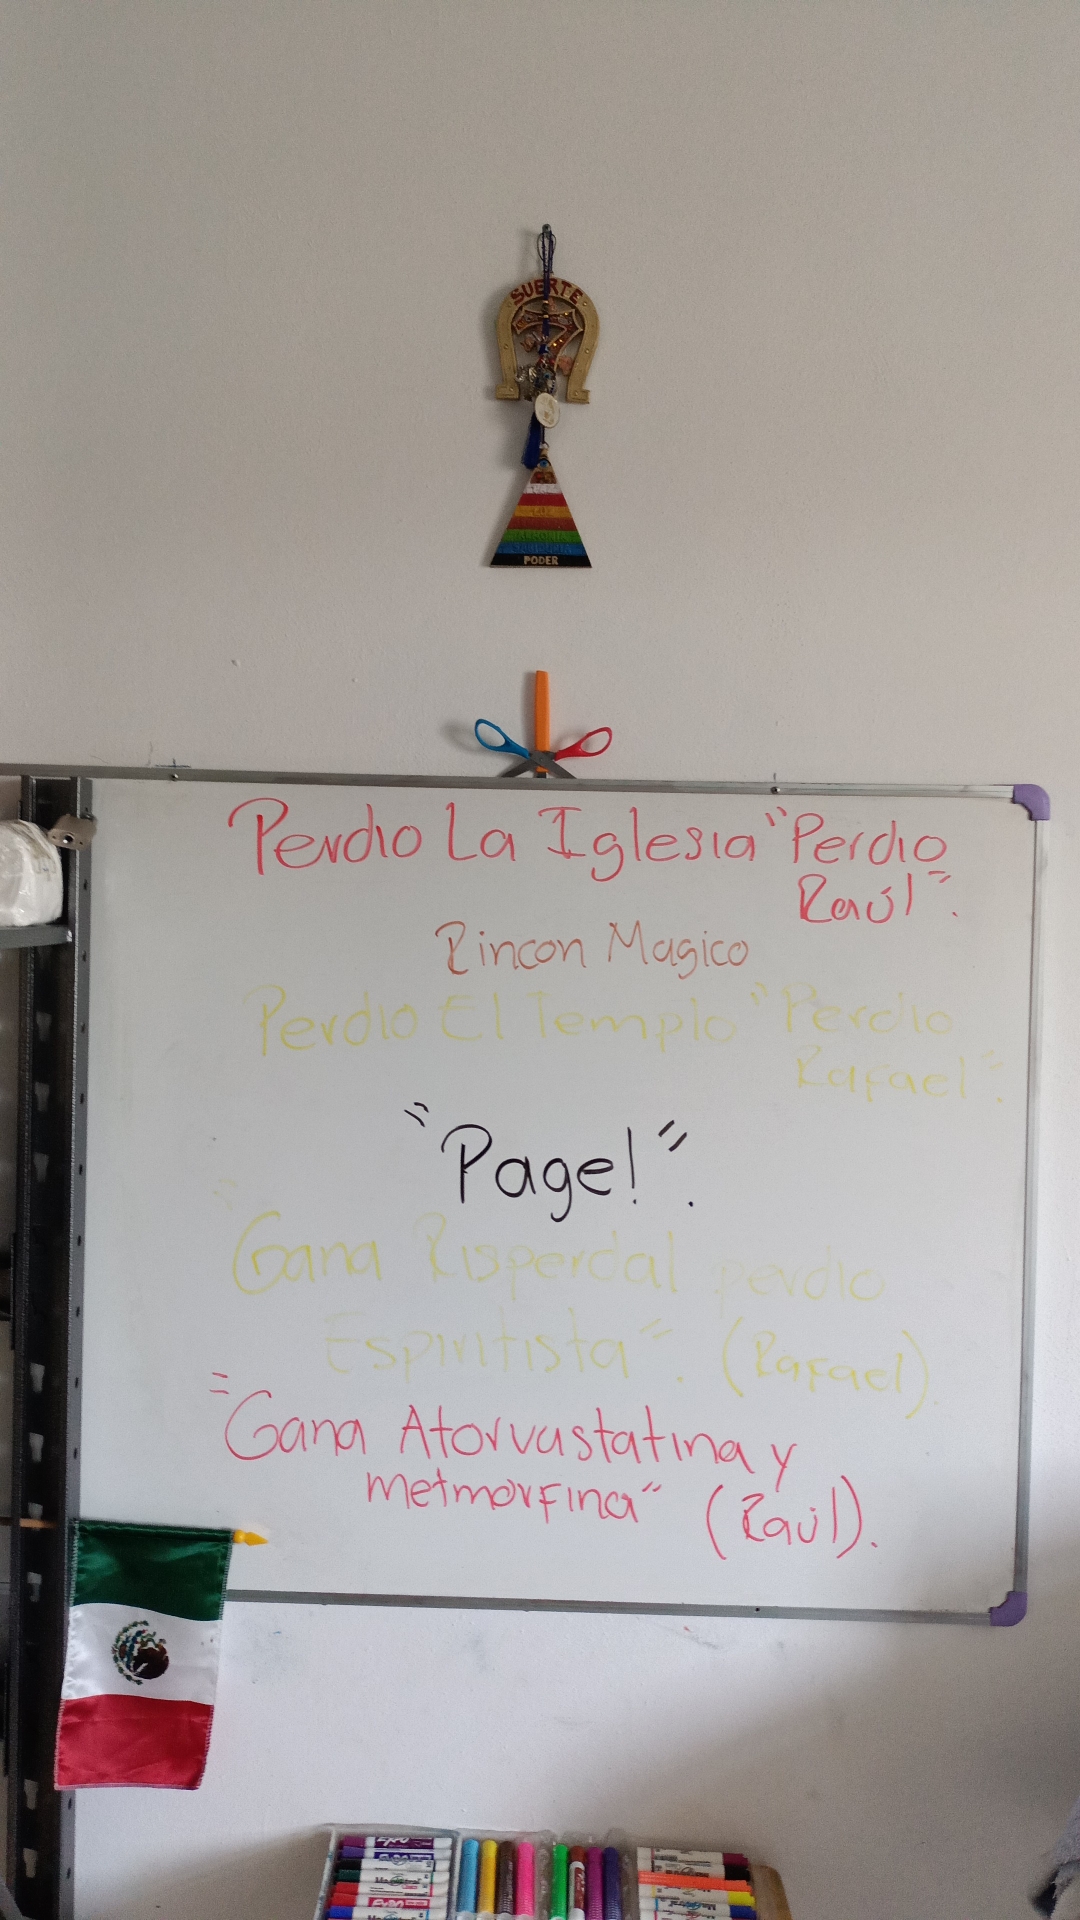 SUERTE
PODER
Perdio La Iglesia "Perdio
Raúl".
Rincon Magico
Perdio El Templo "Perdio
Rafael".
"Page!".
"Gana Risperdal perdio
Espiritista". (Rafael)
"Gana Atorvastatina y
metmorfina" (Raúl).
EXPO
Magistral
EXPO